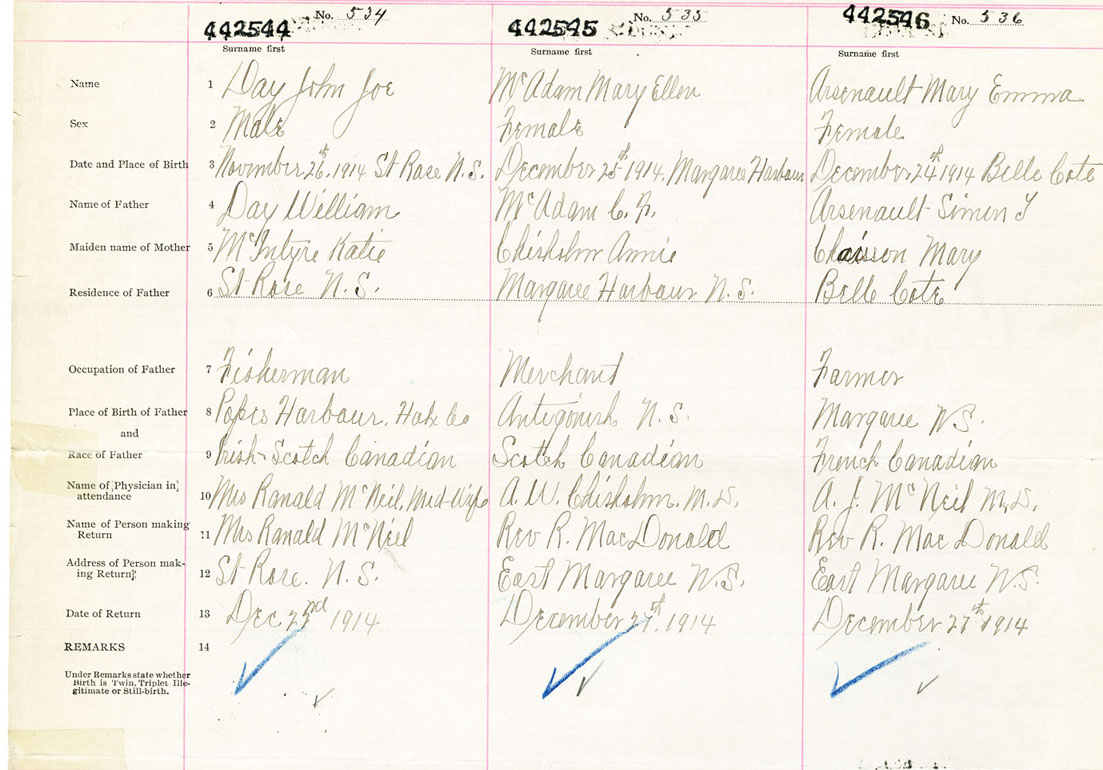 442544 No. 534 442545 No. 535 442546 No. 536
Surname first Surname first Surname first
Name 1 Day John Joe McAdam Mary Ellen Arsenault Mary Emma
Sex 2 Male Female Female
Date and Place of Birth 3 November 26th, 1914 St Rose N.S. December 25th 1914, Margaree Harbour December 24th 1914 Belle Cote
Name of Father 4 Day William McAdam Arsenault Simon
Maiden name of Mother 5 McIntyre Katie Chisholm Annie Chaisson Mary
Residence of Father 6 St Rose N.S. Margaree Harbour N.S. Belle Cote
Occupation of Father 7 Fisherman Merchant Farmer
Place of Birth of Father 8 Popes Harbour, Hafx Co Antigonish N.S. Margaree N.S.
and
Race of Father 9 Irish-Scotch Canadian Scotch Canadian French Canadian
Name of [Physician in] attendance 10 Mrs Ranald McNeil, Mid-Wife A. W. Chisholm. M.D. A. J. McNeil M.D.
Name of Person making Return 11 Mrs Ranald McNeil Rev R. MacDonald Rev R. MacDonald
Address of Person making Return]: 12 St Rose. N.S. East Margaree N.S. East Margaree N.S.
Date of Return 13 Dec 1914 December 27th, 1914 December 27th 1914
REMARKS 14
Under Remarks state whether
Birth is Twin, Triplet Ille-
gitimate or Still-birth.